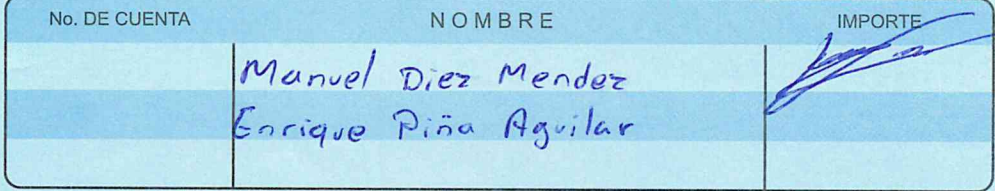 No. DE CUENTA NOMBRE IMPORTE
Manuel Diez Mendez
Enrique Piña Aguilar